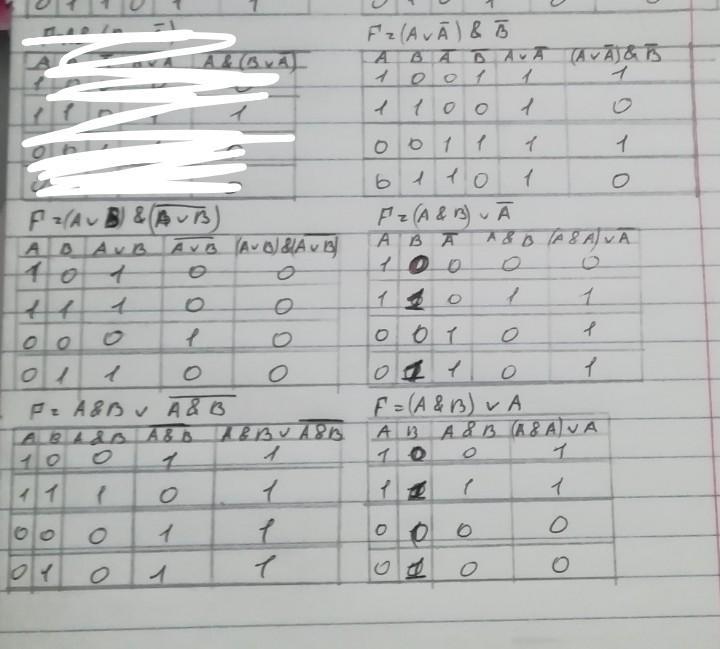 0 1 1 0 1 1
F=(A∨A̅) & B̅
A B A̅ B̅ A∨A̅ (A∨A̅)&B̅
1 0 0 1 1 1
1 1 0 0 1 0
0 0 1 1 1 1
0 1 1 0 1 0
A & (B∨A̅)
1 1 0 1 1
F=(A∨B)&(A̅ ̅∨̅ ̅B̅)
A B A∨B A̅ ̅∨̅ ̅B̅ (A∨B)&(A̅ ̅∨̅ ̅B̅)
1 0 1 0 0
1 1 1 0 0
0 0 0 1 0
0 1 1 0 0
F=(A & B)∨A̅
A B A̅ A & B (A & A)∨A̅
1 0 0 0 0
1 1 0 1 1
0 0 1 0 1
0 1 1 0 1
F= A&B ∨ A̅ ̅&̅ ̅B̅
A B A&B A̅ ̅&̅ ̅B̅ A&B∨A̅ ̅&̅ ̅B̅
1 0 0 1 1
1 1 1 0 1
0 0 0 1 1
0 1 0 1 1
F=(A & B) ∨ A
A B A & B (A & A)∨A
1 0 0 1
1 1 1 1
0 0 0 0
0 1 0 0